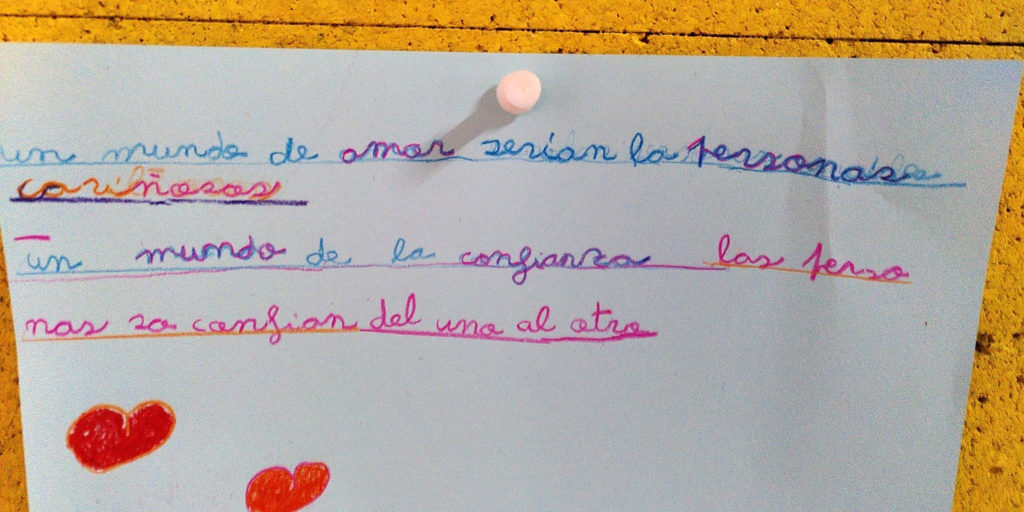 un mundo de amor serian la personas
cariñosas
un mundo de la confianza las perso
nas sa confian del uno al otro